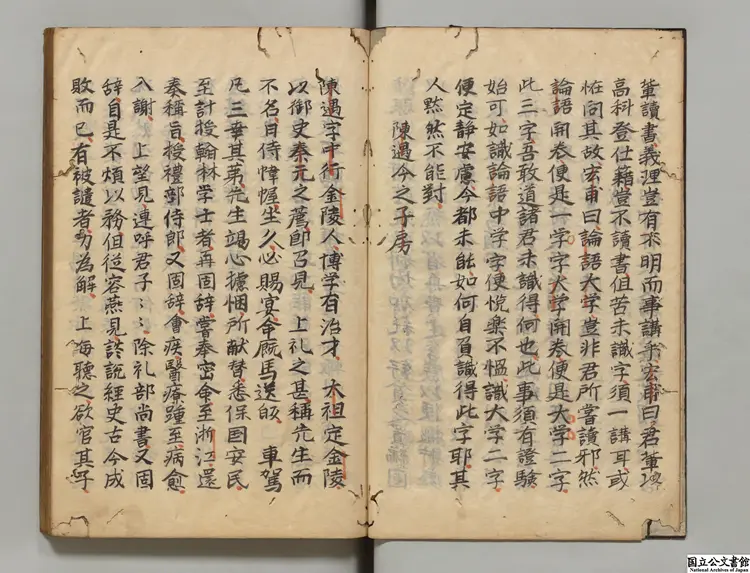 輩讀書義理豈有不明而事講乎宏甫曰君輩擢
高科登仕籍豈不讀書但苦未識字須一講耳或
恠問其故宏甫曰論語大学豈非君所嘗讀邪然
論語開卷便是一学字大学開卷便是大学二字
此三字吾敢道諸君未識得何也此事須有證驗
始可如識論語中学字便悦樂不慍識大学二字
便定靜安慮今都未能如何自負識得此字耶其
人黙然不能對
陳遇今之子房
陳遇字中行金陵人博学有治才太祖定金陵
以御史秦元之薦卽召見上礼之甚稱先生而
不名日侍幃幄坐久必賜宴命厩馬送皈車駕
凡三幸其苐先生竭心攄悃所献替悉保国安民
至計授翰林学士者再固辞嘗奉密命至浙江還
奏稱旨授禮部侍郎又固辞會疾醫療踵至病愈
入謝上望見連呼君子〻〻以除礼部尚書又固
辞自是不煩以務但従容燕見談説經史古今成
敗而已有被譴者力為解上每聴之欲官其子
国立公文書館
National Archives of Japan